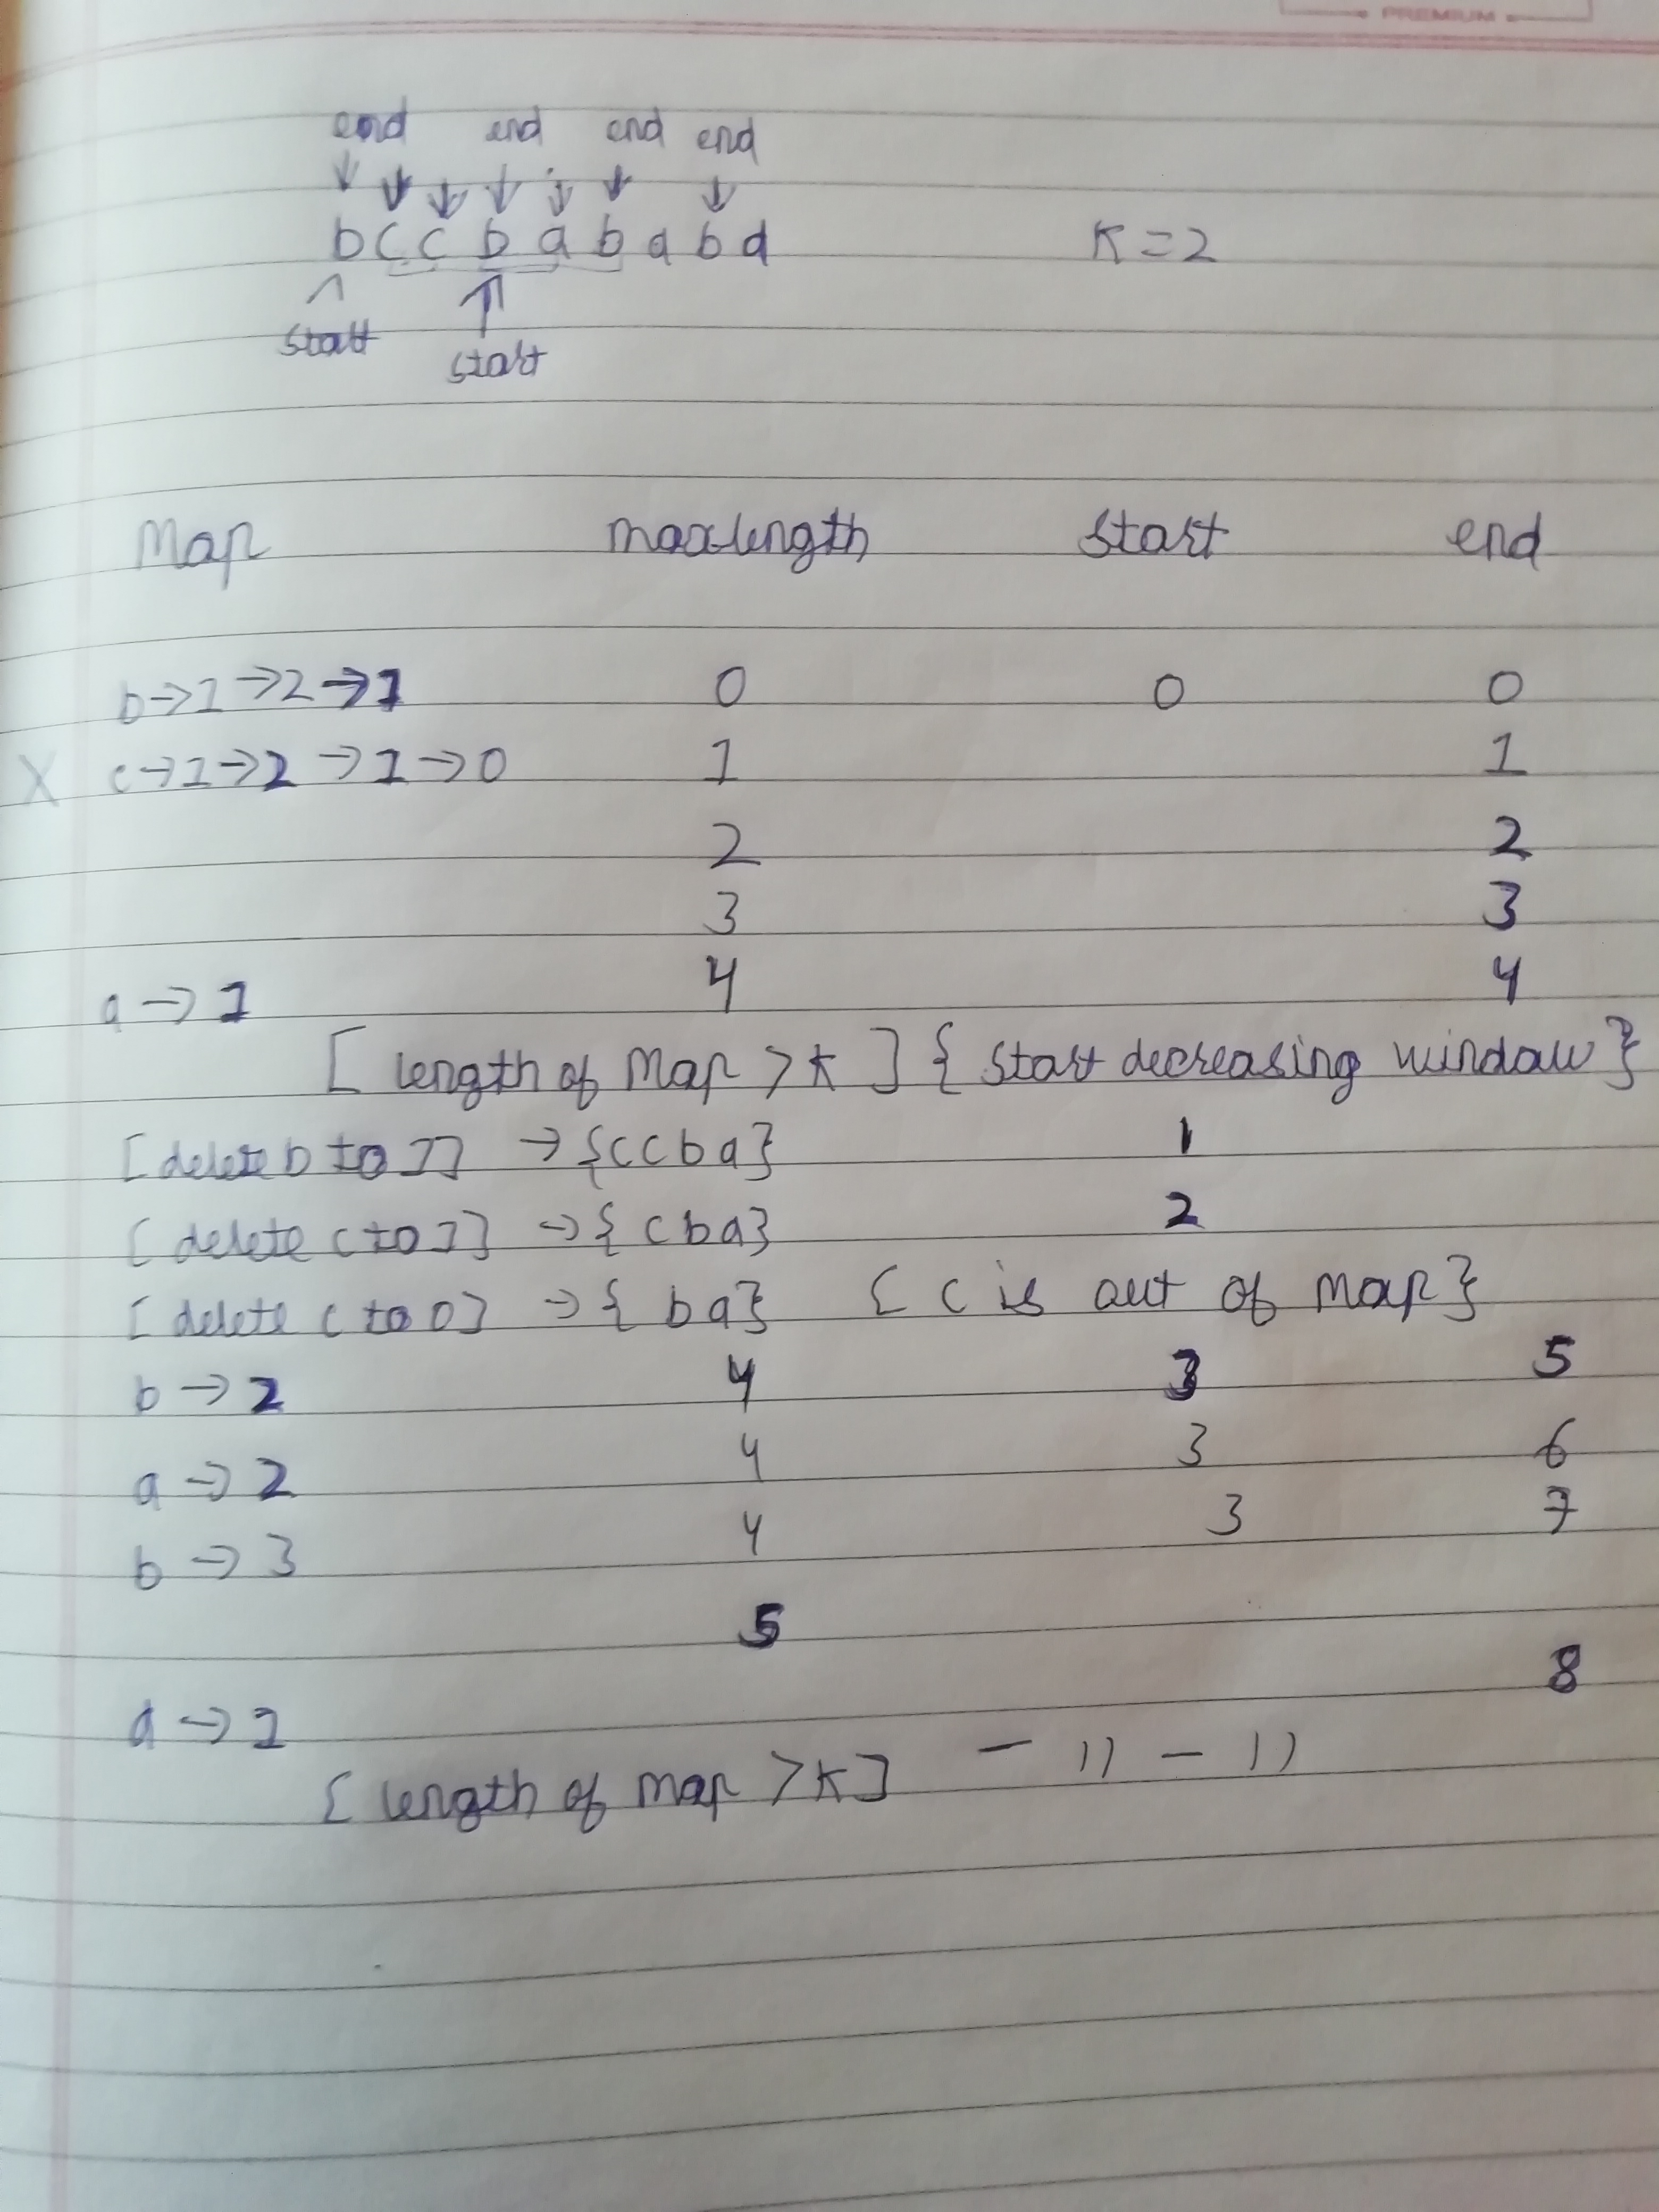 PREMIUM
end end end end
b c c b a b a b d K = 2
start
start
Map maxlength start end
b → 1 → 2 → 1 0 0 0
X c → 1 → 2 → 1 → 0 1 1
2 2
3 3
a → 1 4 4
[ length of Map > K ] { start decreasing window }
[ delete b to 1] → {c c b a} 1
[ delete c to 1] → { c b a} 2
[ delete c to 0] → { b a} { c is out of Map }
b → 2 4 3 5
a → 2 4 3 6
b → 3 4 3 7
5
8
d → 1
[ length of Map > K ] - 11 - 11